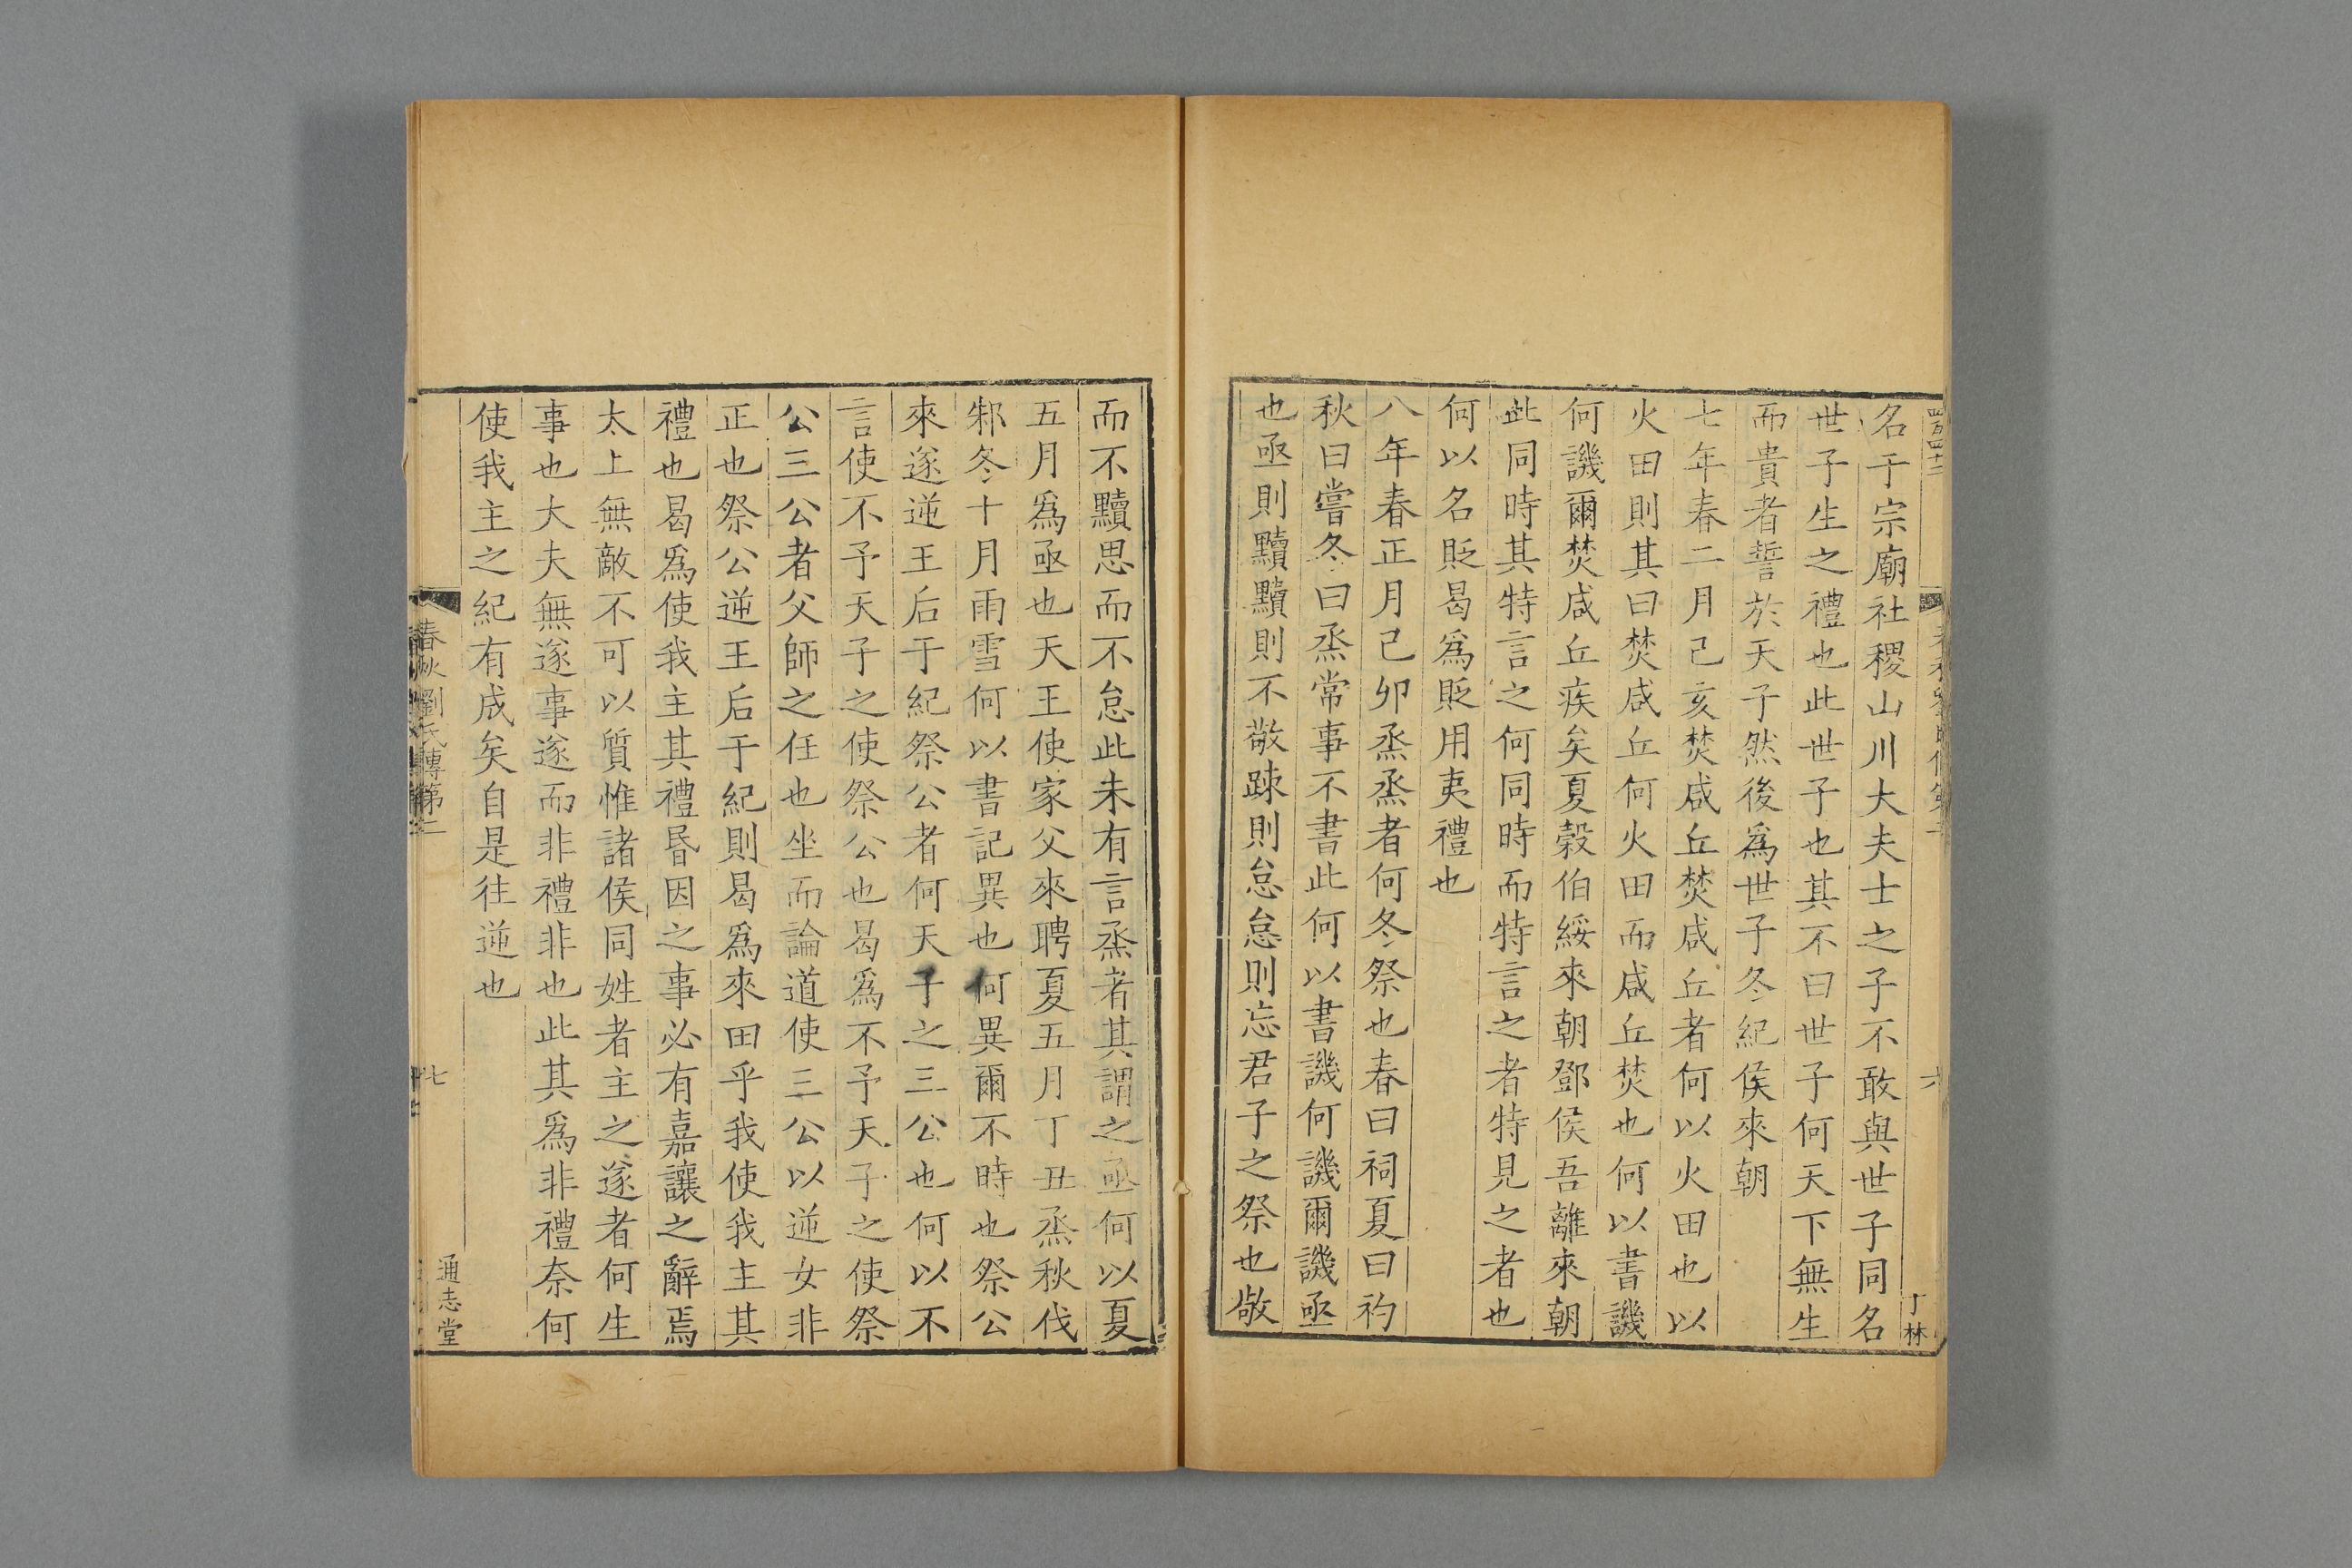 名于宗廟社稷山川大夫士之子不敢與世子同名
世子生之禮也此世子也其不曰世子何天下無生
而貴者誓於天子然後爲世子冬紀侯來朝
七年春二月己亥焚咸丘焚咸丘者何以火田也以
火田則其曰焚咸丘何火田而咸丘焚也何以書譏
何譏爾焚咸丘疾矣夏榖伯綏來朝鄧侯吾離來朝
此同時其特言之何同時而特言之者特見之者也
何以名貶曷爲貶用夷禮也
八年春正月己卯烝烝者何冬祭也春曰祠夏曰礿
秋曰嘗冬曰烝常事不書此何以書譏何譏爾譏亟
也亟則黷黷則不敬踈則怠怠則忘君子之祭也敬
六
丁林
而不黷思而不怠此未有言烝者其謂之亟何以夏
五月爲亟也天王使家父來聘夏五月丁丑烝秋伐
邾冬十月雨雪何以書記異也何異爾不時也祭公
來遂逆王后于紀祭公者何天子之三公也何以不
言使不予天子之使祭公也曷爲不予天子之使祭
公三公者父師之任也坐而論道使三公以逆女非
正也祭公逆王后于紀則曷爲來田乎我使我主其
禮也曷爲使我主其禮昏因之事必有嘉讓之辭焉
太上無敵不可以質惟諸侯同姓者主之遂者何生
事也大夫無遂事遂而非禮非也此其爲非禮奈何
使我主之紀有成矣自是往逆也
春秋劉氏傳第二
七
通志堂